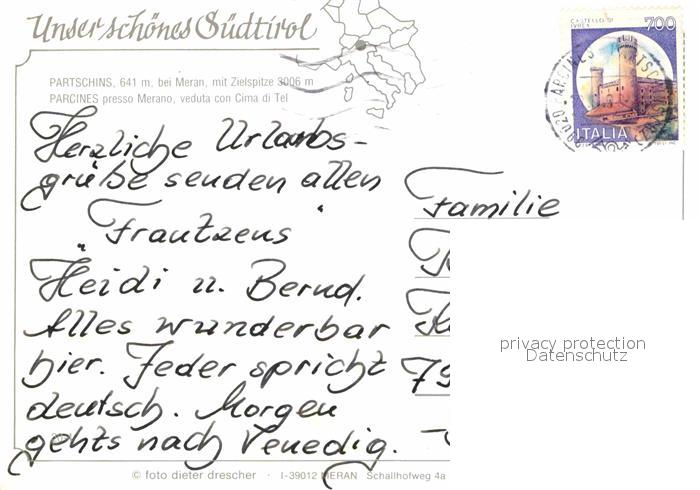 Unser schönes Südtirol
PARTSCHINS, 641 m, bei Meran, mit Zielspitze 3006 m
PARCINES presso Merano, veduta con Cima di Tel
Herzliche Urlaubs-
grüße senden allen
"Frautzens"
Heidi u. Bernd.
Alles wunderbar
hier. Jeder spricht
deutsch. Morgen
gehts nach Venedig.
Familie
79
CASTELLO DI
IVREA
700
ITALIA
privacy protection
Datenschutz
© foto dieter drescher · I-39012 MERAN Schallhofweg 4a